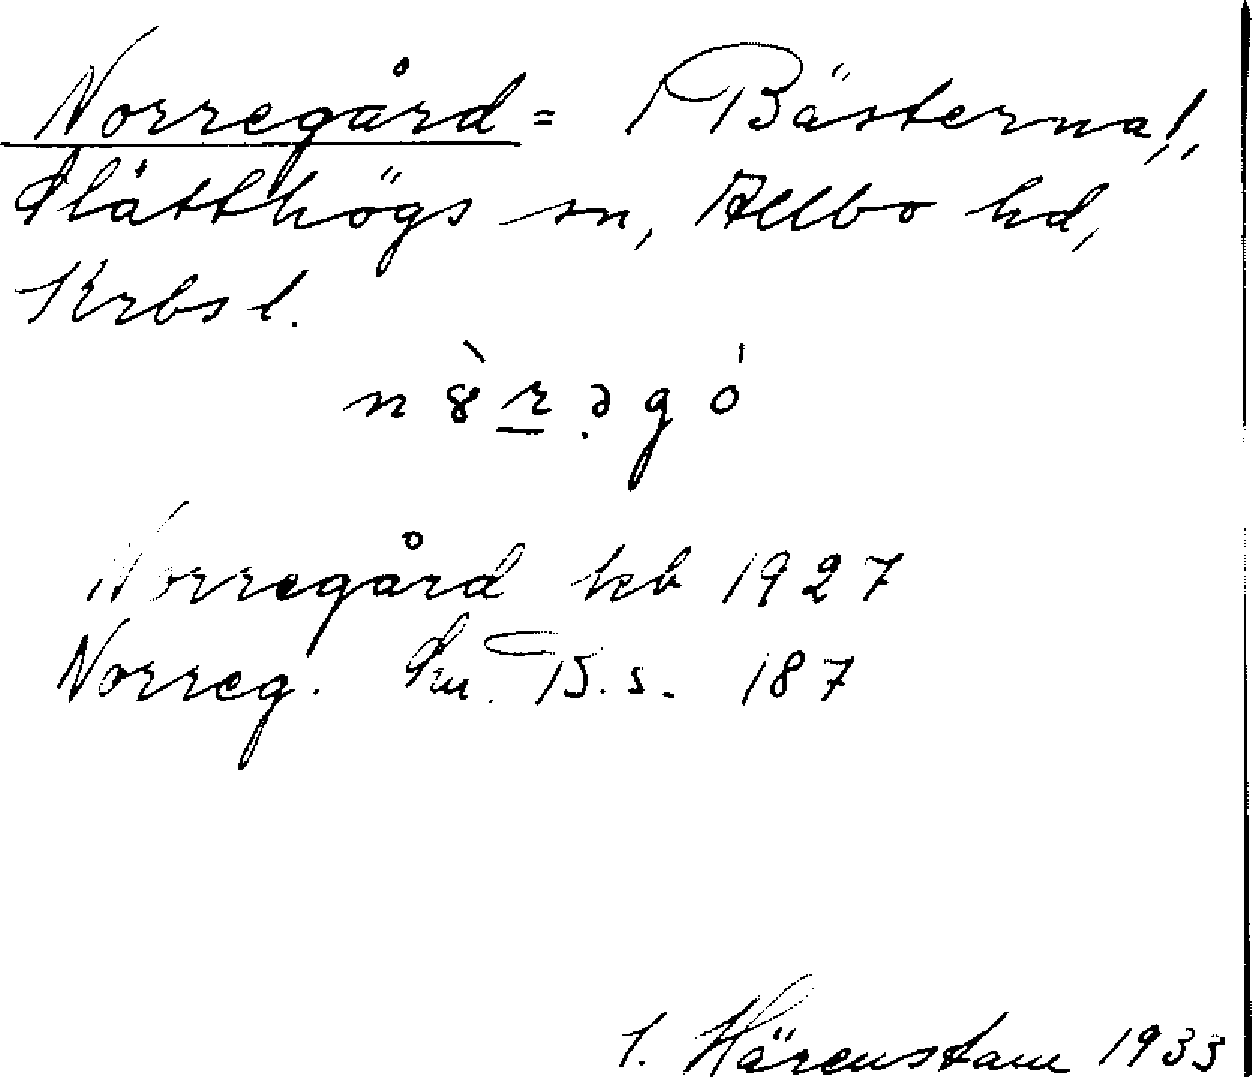 Norregård = (Bästerna),
Slätthögs sn, Allbo hd,
Krbs l.
Norregård kb 1927
Norreg. Sm. B.s. 187
Härenstam 1933